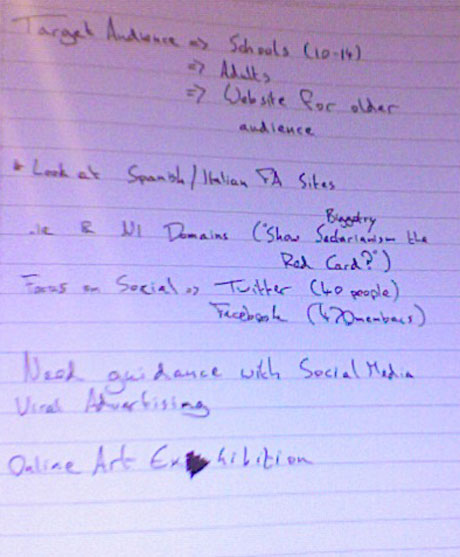 Target Audience => Schools (10-14)
=> Adults
=> Website for older
audience
* Look at Spanish/Italian FA Sites
.ie & NI Domains ("Show Sectarianism the
Biggotry
Red Card?")
Focus on Social => Twitter (40 people)
Facebook (470 members)
Need guidance with Social Media
Viral Advertising
Online Art Exhibition